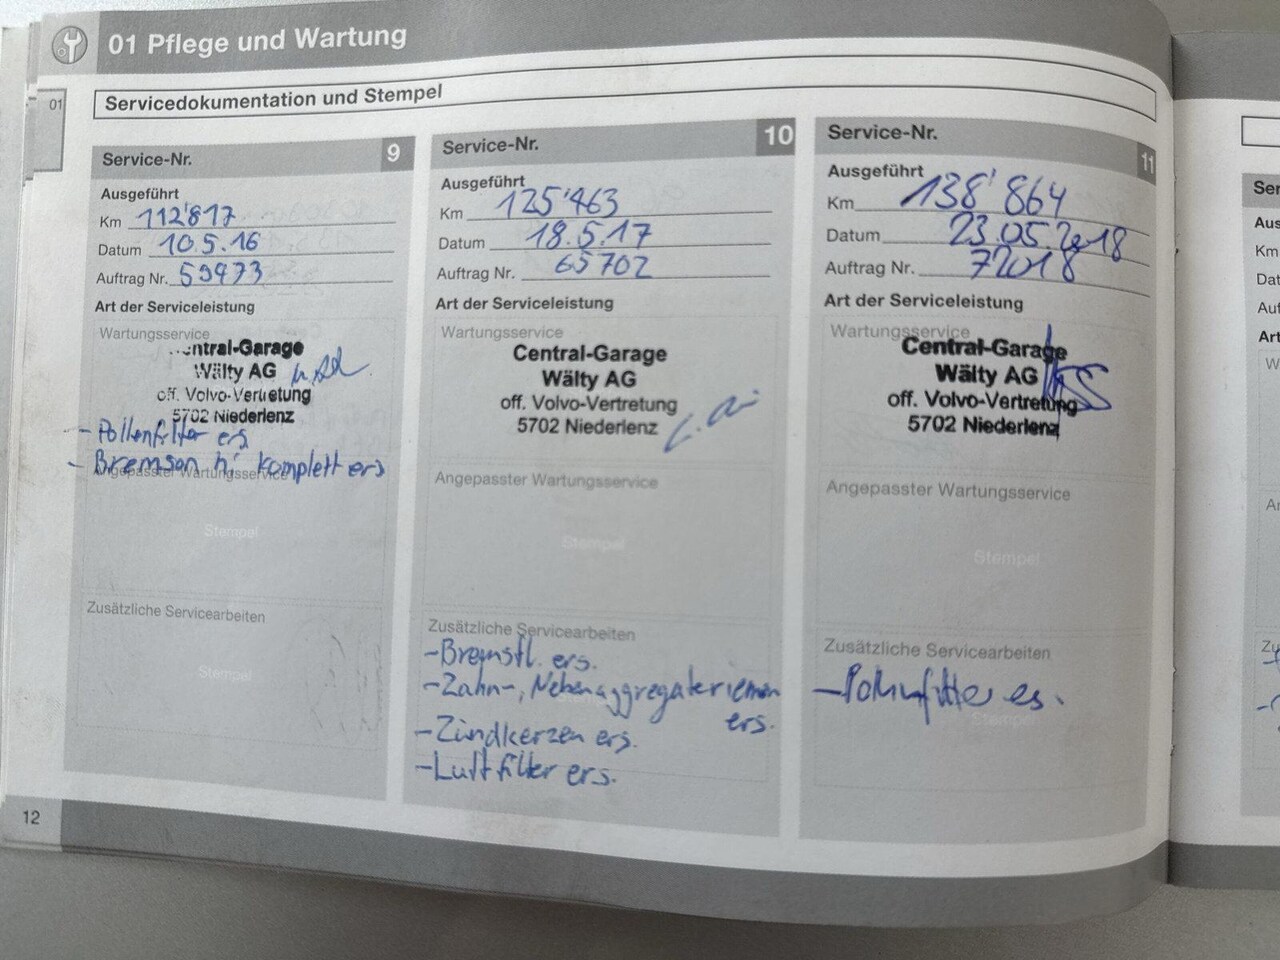 01 Pflege und Wartung
01
Servicedokumentation und Stempel
Service-Nr. 9
Ausgeführt
Km 112'817
Datum 10.5.16
Auftrag Nr. 59973
Art der Serviceleistung
Wartungsservice
Central-Garage
Wälty AG
off. Volvo-Vertretung
5702 Niederlenz
- Pollenfilter ers
- Bremsen hi komplett ers
Angepasster Wartungsservice
Stempel
Zusätzliche Servicearbeiten
Stempel
12
Service-Nr. 10
Ausgeführt
Km 125'463
Datum 18.5.17
Auftrag Nr. 65702
Art der Serviceleistung
Wartungsservice
Central-Garage
Wälty AG
off. Volvo-Vertretung
5702 Niederlenz
Angepasster Wartungsservice
Stempel
Zusätzliche Servicearbeiten
-Bremsfl. ers.
-Zahn-, Nebenaggregateriemen
ers.
-Zündkerzen ers.
-Luftfilter ers.
Service-Nr. 11
Ausgeführt
Km 138'864
Datum 23.05.2018
Auftrag Nr. 72018
Art der Serviceleistung
Wartungsservice
Central-Garage
Wälty AG
off. Volvo-Vertretung
5702 Niederlenz
Angepasster Wartungsservice
Stempel
Zusätzliche Servicearbeiten
-Pollenfilter es.
Stempel
Ser
Aus
Km
Dat
Auf
Art